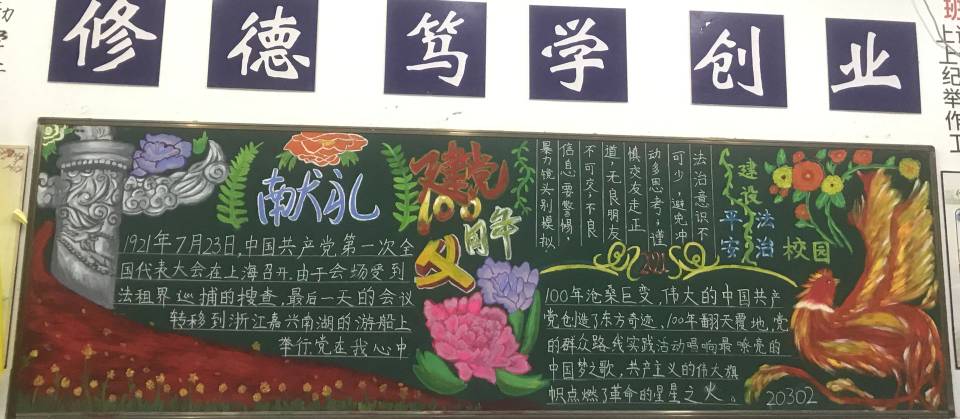 修德笃学创业
献礼
建党
100
周年
1921年7月23日,中国共产党第一次全
国代表大会在上海召开,由于会场受到
法租界巡捕的搜查,最后一天的会议
转移到浙江嘉兴南湖的游船上
举行党在我心中
法治意识不
可少,避免冲
动多思考,谨
慎交友走正
道,无良朋友
不可交,不良
信息要警惕,
暴力镜头别模拟
建设
平安
法治
校园
2021
100年沧桑巨变,伟大的中国共产
党创造了东方奇迹,100年翻天覆地,党
的群众路线实践活动唱响最嘹亮的
中国梦之歌,共产主义的伟大旗
帜点燃了革命的星星之火。
20302
班
上纪举作工